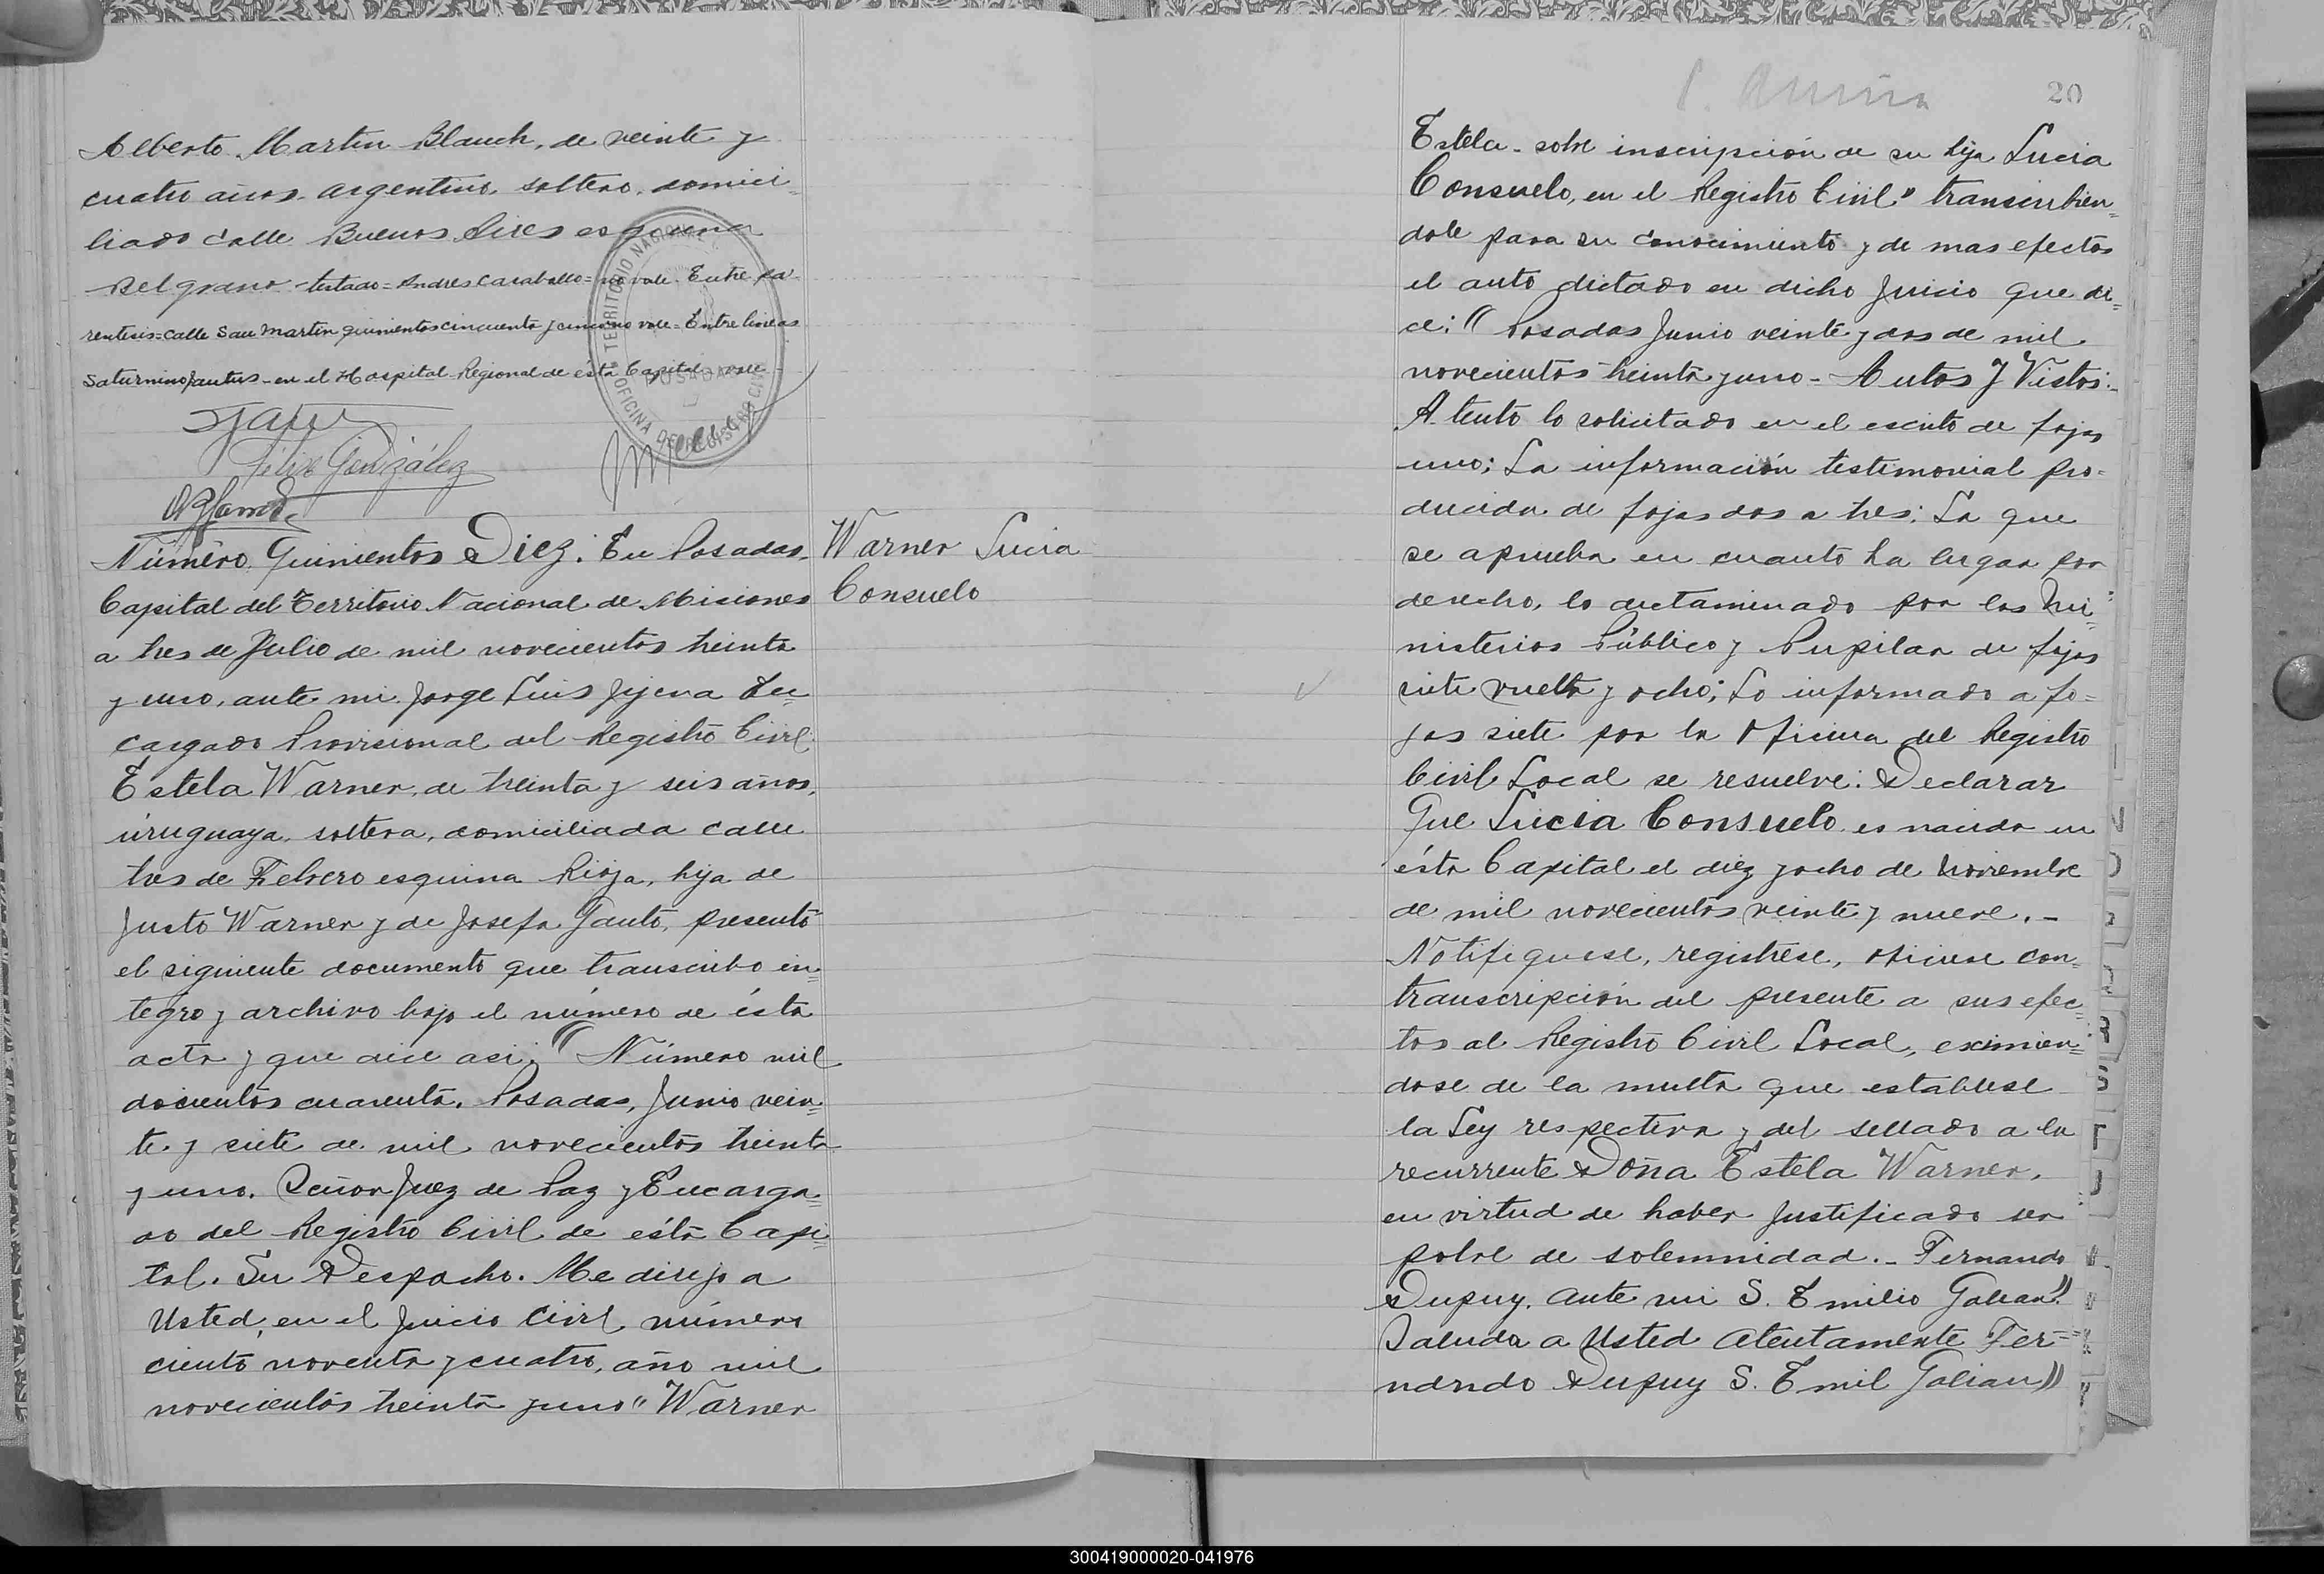 Alberto Martin Blanch, de veinte y
cuatro años. argentino, soltero. domici-
liado calle Buenos Aires esquina
Belgrano - testado = Andres Caraballo = no vale. Entre pa-
rentesis = calle San Martin quinientos cincuenta y cinco no vale - Entre lineas
Saturnino Jantus - en el Hospital Regional de ésta Capital vale
TERRITORIO NACIONAL
POSADAS
OFICINA DE REGISTRO CIVIL
Félix González
Número Quinientos Diez. En Posadas,
Capital del Territorio Nacional de Misiones
a tres de Julio de mil novecientos treinta
y uno, ante mi Jorge Luis Jijena En-
cargado Provisional del Registro Civil,
Estela Warner, de treinta y seis años,
úruguaya, soltera, domiciliada calle
tres de Febrero esquina Rioja, hija de
Justo Warner y de Josefa Gauto, presentó
el siguiente documento que transcribo ín-
tegro y archivo bajo el número de ésta
acta y que dice así: (( Número mil
docientos cuarenta. Posadas, Junio vein-
te y siete de mil novecientos treinta
y uno. Señor Juez de Paz y Encarga-
do del Registro Civil de ésta Capi-
tal. Su Despacho. Me dirijo a
Usted, en el Juicio Civil número
ciento noventa y cuatro, año mil
novecientos treinta y uno " Warner
Warner Lucia
Consuelo
20
Estela - sobre inscripción de su hija Lucia
Consuelo, en el Registro Civil" transcribien-
dole para su conocimiento y de mas efectos
el auto dictado en dicho Juicio que di-
ce: (( Posadas Junio veinte y dos de mil
novecientos treinta y uno - Autos Y Vistos:-
Atento lo solicitado en el escrito de fojas
uno; La información testimonial pro-
ducida de fojas dos a tres; La que
se aprueba en cuanto ha lugar por
derecho, lo dictaminado por los Mi-
nisterios Público y Pupilar de fojas
siete vuelta y ocho; Lo informado a fo-
jas siete por la Oficina del Registro
Civil Local se resuelve: Declarar
Que Lucia Consuelo es nacida en
ésta Capital el diez y ocho de Noviembre
de mil novecientos veinte y nueve. -
Notifiquese, registrese, oficiese con
transcripción del presente a sus efec-
tos al Registro Civil Local, eximien-
dose de la multa que establese
la Ley respectiva y del sellado a la
recurrente Doña Estela Warner,
en virtud de haber Justificado ser
pobre de solemnidad. - Fernando
Dupuy. Ante mi S. Emilio Galian)).
Saluda a Usted Atentamente Fer-
nando Dupuy S. Emil Galian))
300419000020-041976